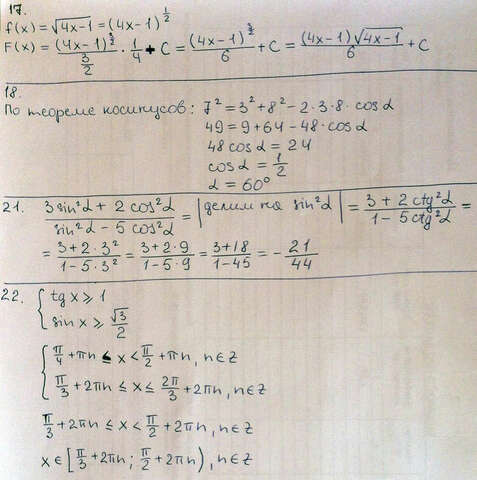 17.
f(x) = √(4x-1) = (4x-1)^(1/2)
F(x) = (4x-1)^(3/2) / (3/2) · 1/4 + C = (4x-1)^(3/2) / 6 + C = (4x-1)√(4x-1) / 6 + C
18.
По теореме косинусов: 7² = 3² + 8² - 2·3·8·cos α
49 = 9 + 64 - 48·cos α
48 cos α = 24
cos α = 1/2
α = 60°
21. (3 sin²α + 2 cos²α) / (sin²α - 5 cos²α) = | делим на sin²α | = (3 + 2 ctg²α) / (1 - 5 ctg²α) =
= (3 + 2·3²) / (1 - 5·3²) = (3 + 2·9) / (1 - 5·9) = (3 + 18) / (1 - 45) = - 21/44
22. { tg x ⩾ 1
sin x ⩾ √3/2
{ π/4 + πn ≤ x < π/2 + πn, n∈Z
π/3 + 2πn ≤ x ≤ 2π/3 + 2πn, n∈Z
π/3 + 2πn ≤ x < π/2 + 2πn, n∈Z
x ∈ [π/3 + 2πn; π/2 + 2πn), n∈Z